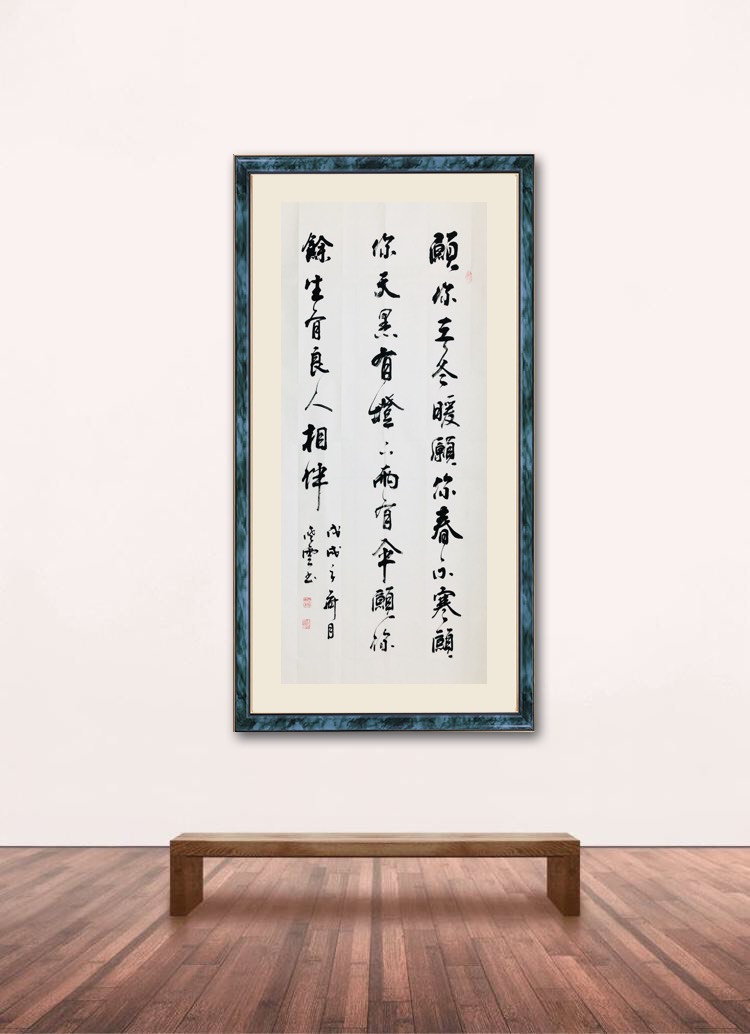 願你三冬暖願你春不寒願
你天黑有燈下雨有傘願你
餘生有良人相伴
戊戌之月
雲书